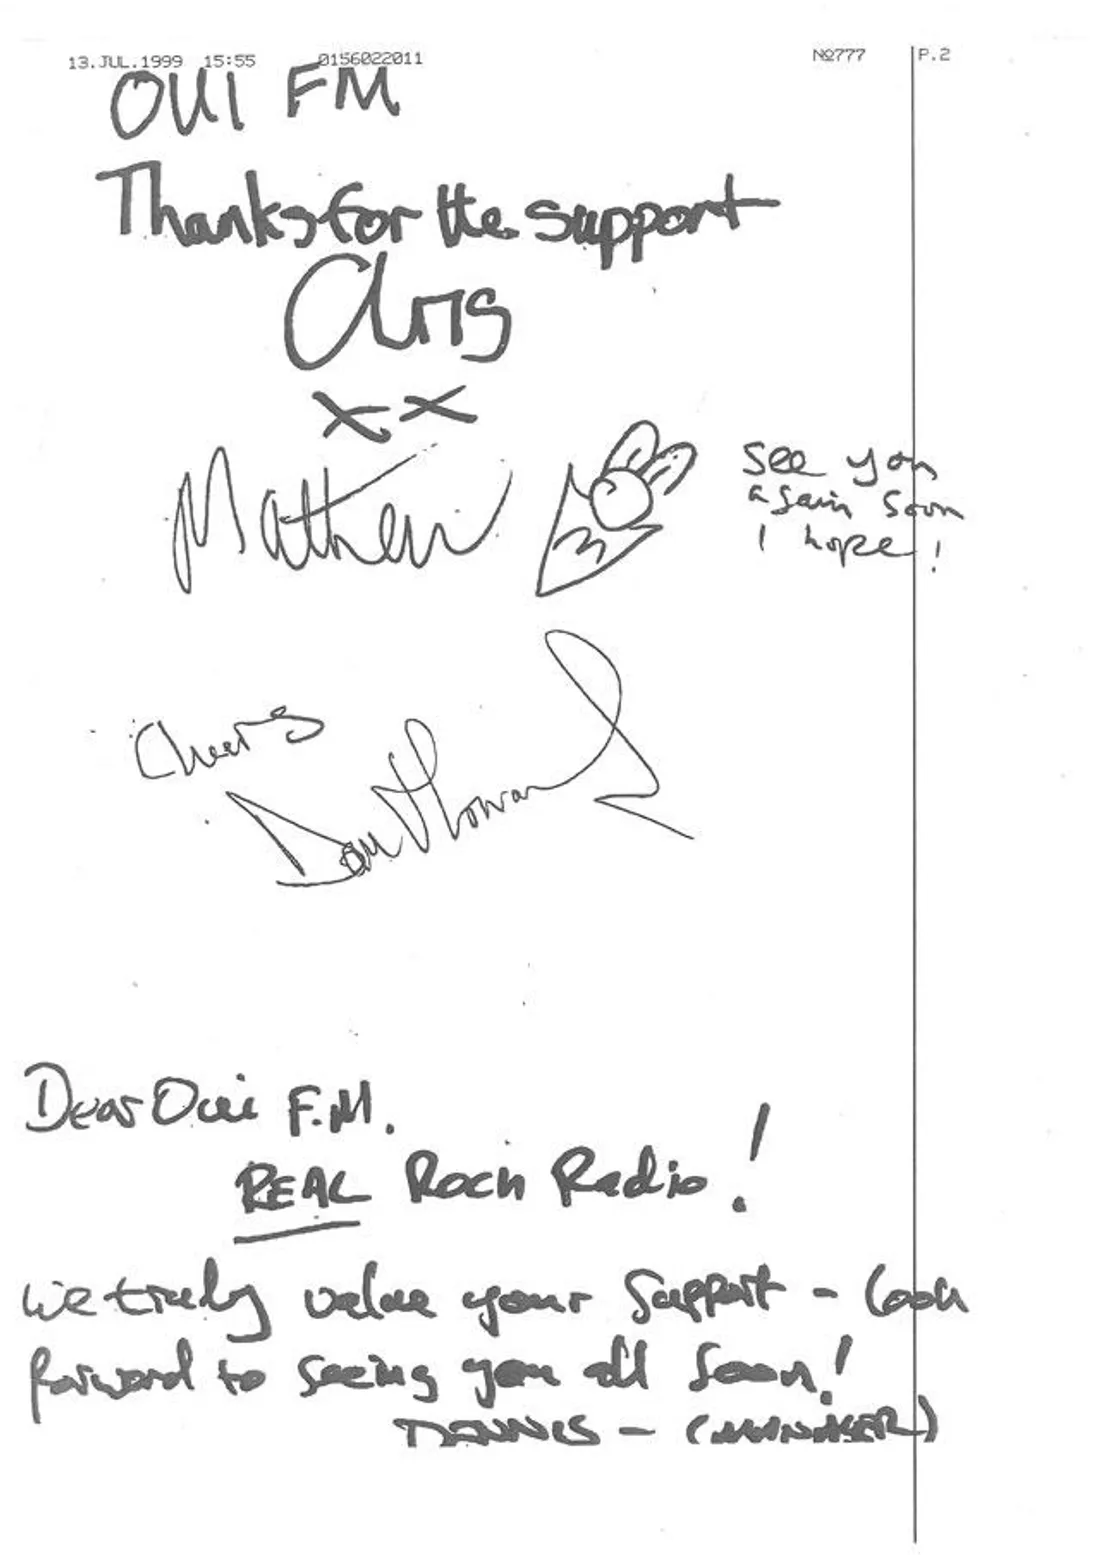 13.JUL.1999 15:55 0156022011 Nº777 P.2
OUI FM
Thanks for the support
Chris
xx
Matthew
See you
again soon
I hope!
Cheers
Dom Howard
Dear Oui F.M.
REAL Rock Radio!
We truly value your Support - Look
forward to seeing you all Soon!
DENNIS - (MANAGER)